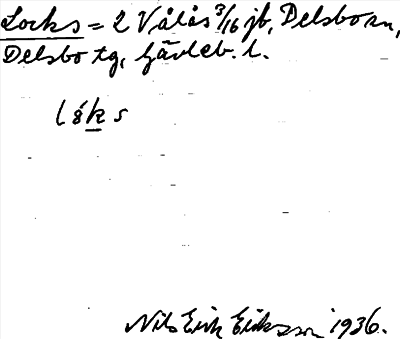 Locks = 2 Vålås 3/16 jb, Delsbo sn,
Delsbo tg, Gävleb. l.
låks
Nils Erik Eriksson 1936.